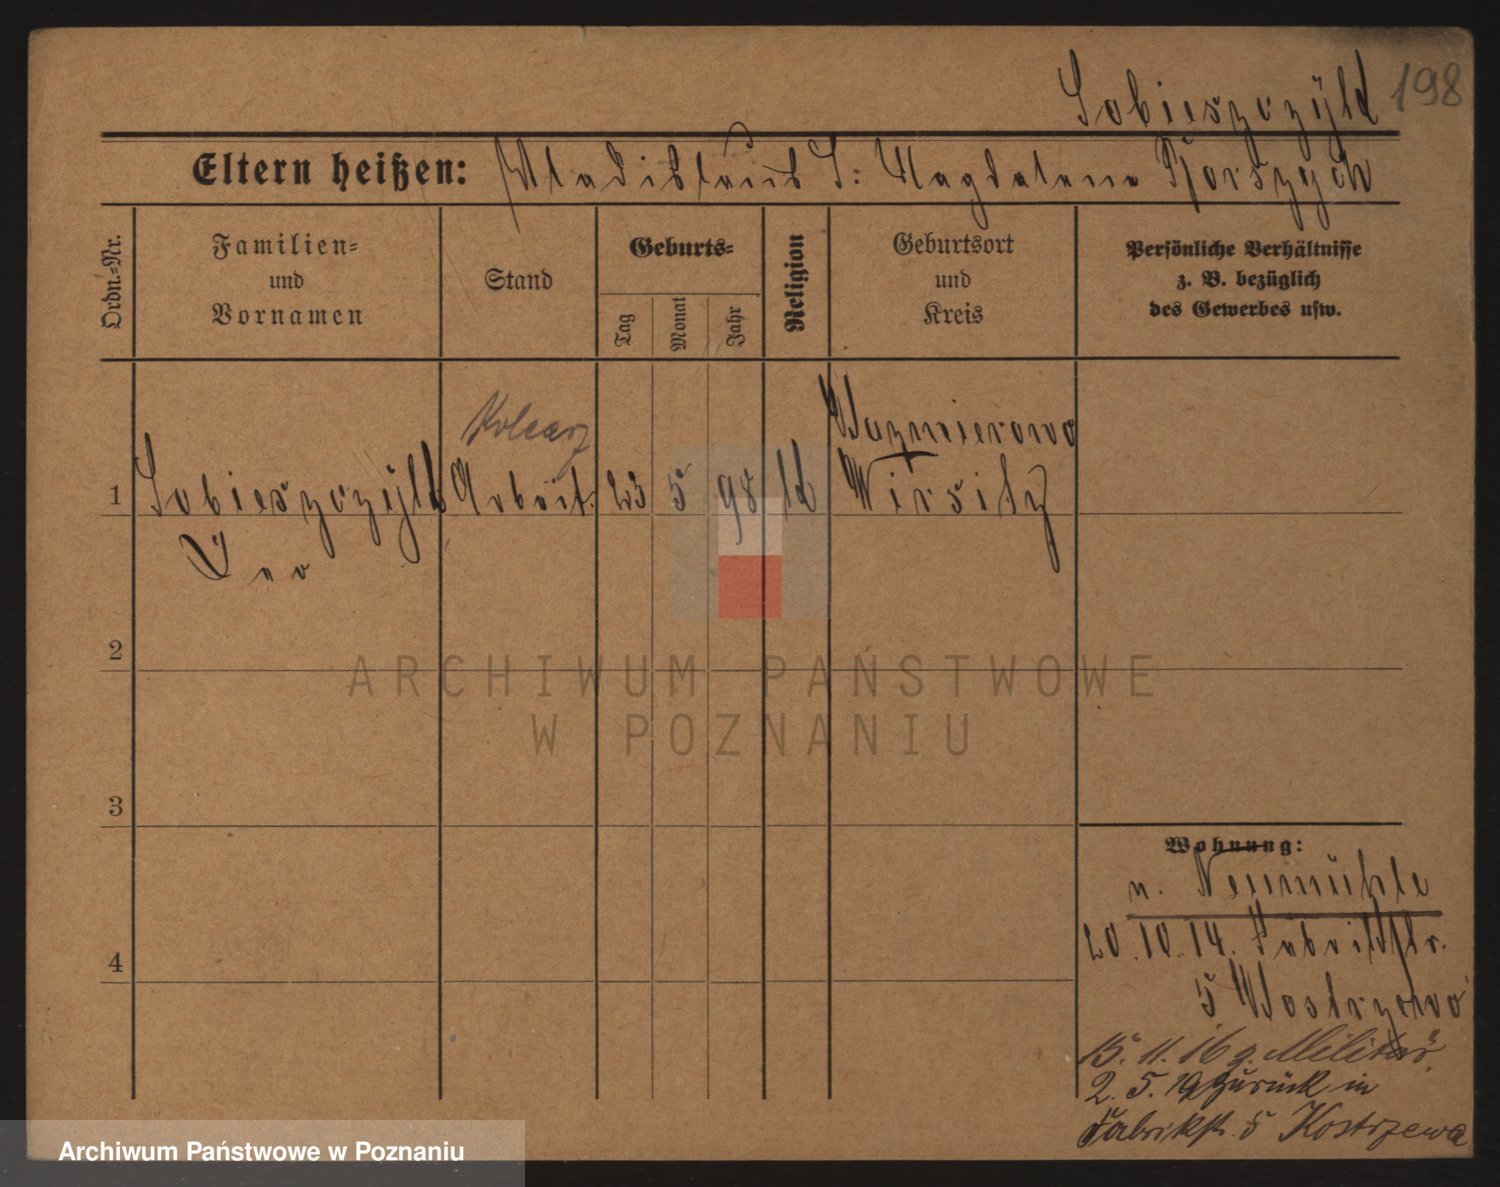 Sobieszczyk 198
Eltern heißen: Wladislaus S: Magdalena
Ordn.-Nr.
Familien-
und
Vornamen
Stand
Geburts-
Tag
Monat
Jahr
Religion
Geburtsort
und
Kreis
Persönliche Verhältnisse
z. B. bezüglich
des Gewerbes usw.
Kolearz
1 Sobieszczyk Arbeit. 23 5 98 k Wirsitz
Leo
2
3
4
Wohnung:
n. Neumühle
20.10.14. Fabrikstr.
5 Kostrzewa
15. 11. 16 z. Militär.
2. 5. 19 zurück in
Fabrikstr. 5 Kostrzewa
ARCHIWUM PAŃSTWOWE
W POZNANIU
Archiwum Państwowe w Poznaniu